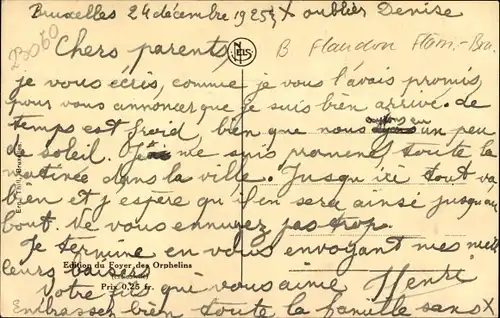 Bruxelles 24 décembre 1925 X oublier Denise
Chers parents,
B Flandon Flam.-Bra.
23060
NELS
je vous écris, comme je vous l'avais promis
pour vous annoncer que je suis bien arrivé. Le
temps est froid, bien que nous ayons eu un peu
de soleil. Je me suis promené toute la
matinée dans la ville. Jusqu'ici tout va
bien et j'espère qu'il en sera ainsi jusqu'au
bout. Ne vous ennuyez pas trop.
Je termine en vous envoyant mes meil-
leurs baisers
Edition du Foyer des Orphelins
Votre fils qui vous aime Henri
Prix 0,25 fr.
Embrasser bien toute la famille sans X
Ern. Thill, Bruxelles